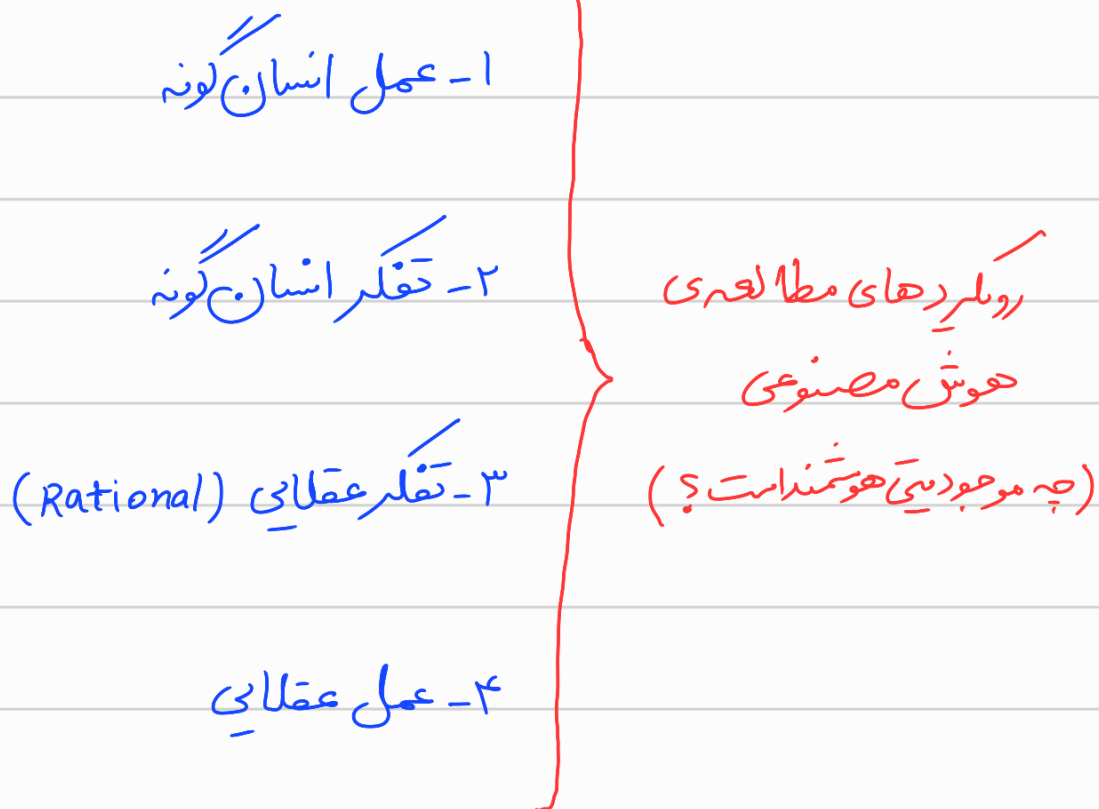 رویکردهای مطالعه‌ی
هوش مصنوعی
(چه موجودیتی هوشمند است؟)
۱- عمل انسان‌گونه
۲- تفکر انسان‌گونه
۳- تفکر عقلایی (Rational)
۴- عمل عقلایی